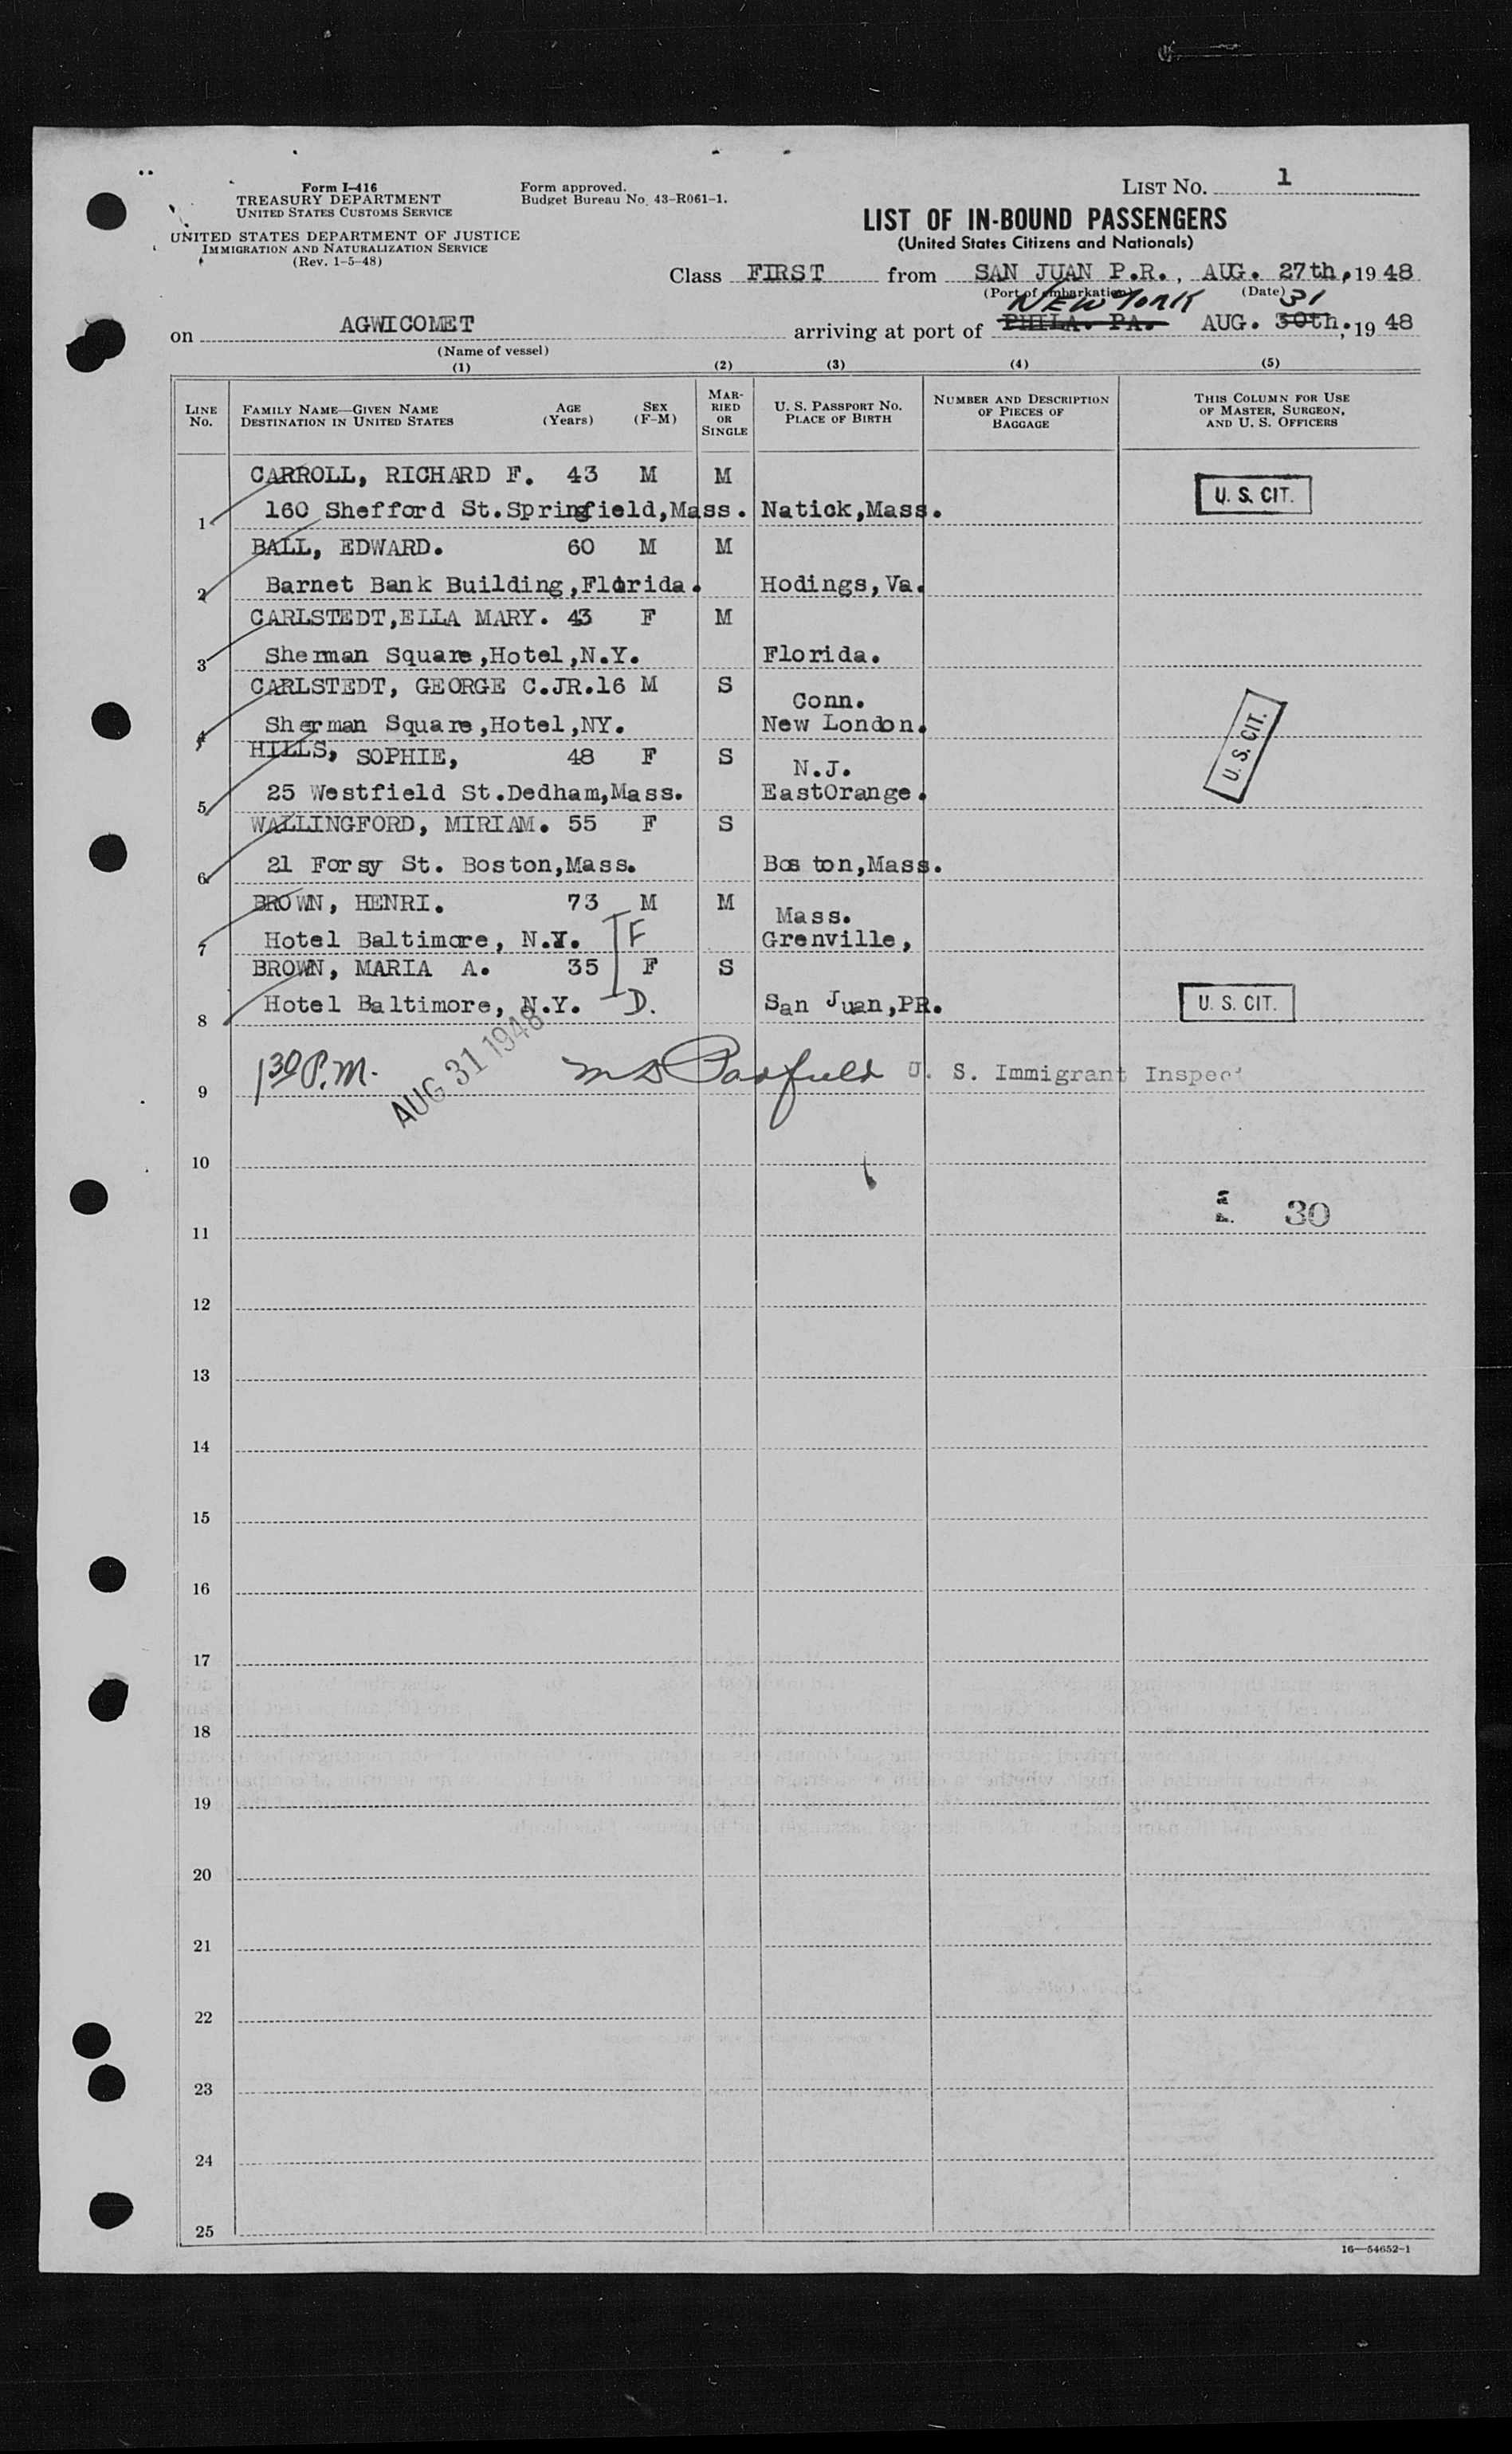 Form I-416
TREASURY DEPARTMENT
UNITED STATES CUSTOMS SERVICE
UNITED STATES DEPARTMENT OF JUSTICE
IMMIGRATION AND NATURALIZATION SERVICE
(Rev. 1-5-48)
Form approved.
Budget Bureau No. 43-R061-1.
LIST NO. 1
LIST OF IN-BOUND PASSENGERS
(United States Citizens and Nationals)
Class FIRST from SAN JUAN P.R., AUG. 27th, 1948
(Port of embarkation) (Date)
NEW YORK 31
on AGWICOMET arriving at port of PHILA. PA. AUG. 30th., 19 48
(Name of vessel)
(1) (2) (3) (4) (5)
LINE NO.
FAMILY NAME—GIVEN NAME
DESTINATION IN UNITED STATES
AGE (Years)
SEX (F-M)
MARRIED OR SINGLE
U. S. PASSPORT NO.
PLACE OF BIRTH
NUMBER AND DESCRIPTION OF PIECES OF BAGGAGE
THIS COLUMN FOR USE OF MASTER, SURGEON, AND U. S. OFFICERS
CARROLL, RICHARD F. 43 M M
U. S. CIT.
1 160 Shefford St.Springfield,Mass. Natick,Mass.
BALL, EDWARD. 60 M M
2 Barnet Bank Building,Florida. Hodings,Va.
CARLSTEDT,ELLA MARY. 43 F M
3 Sherman Square,Hotel,N.Y. Florida.
CARLSTEDT, GEORGE C.JR.16 M S
Conn.
4 Sherman Square,Hotel,NY. New London.
U. S. CIT.
HILLS, SOPHIE, 48 F S
N.J.
5 25 Westfield St.Dedham,Mass. EastOrange.
WALLINGFORD, MIRIAM. 55 F S
6 21 Forsy St. Boston,Mass. Boston,Mass.
BROWN, HENRI. 73 M M
Mass.
7 Hotel Baltimore, N.Y. F Grenville,
BROWN, MARIA A. 35 F S
8 Hotel Baltimore, N.Y. D. San Juan,PR.
U. S. CIT.
9 1 30 P.M. AUG 31 1948 U. S. Immigrant Inspec
10
30
11
12
13
14
15
16
17
18
19
20
21
22
23
24
25
16—54652-1